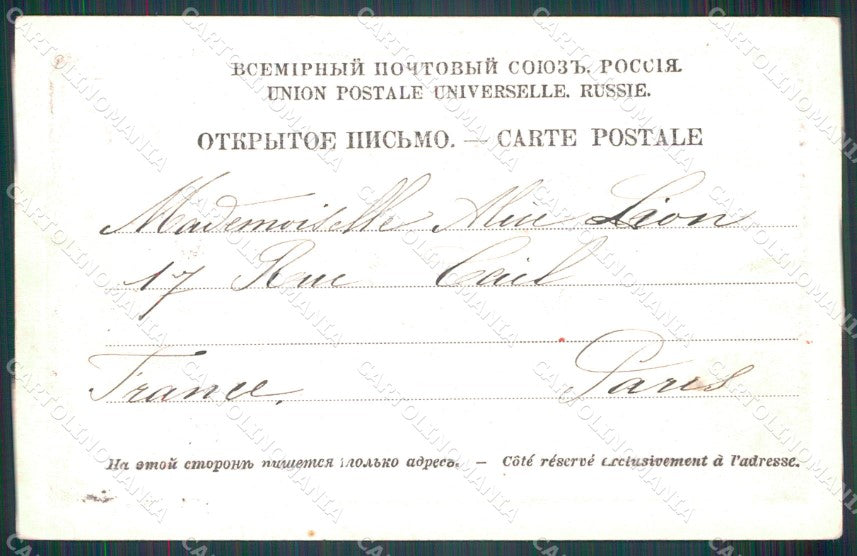 ВСЕМІРНЫЙ ПОЧТОВЫЙ СОЮЗЪ. РОССІЯ.
UNION POSTALE UNIVERSELLE. RUSSIE.
ОТКРЫТОЕ ПИСЬМО. — CARTE POSTALE
Mademoiselle Lion
17 Rue Cail
France. Paris
На этой сторонѣ пишется только адресъ. — Côté réservé exclusivement à l'adresse.
CARTOLINOMANIA